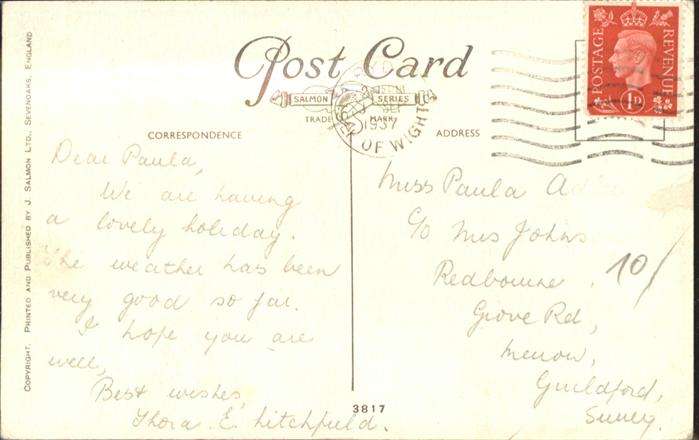 Post Card
SALMON SERIES
TRADE MARK
CORRESPONDENCE
ADDRESS
COPYRIGHT. PRINTED AND PUBLISHED BY J. SALMON LTD., SEVENOAKS, ENGLAND
POSTAGE REVENUE
1D
1937
OF WIGHT
Dear Paula,
We are having
a lovely holiday.
The weather has been
very good so far.
I hope you are
well,
Best wishes,
Thora E. Litchfield.
Miss Paula
C/o Mrs Johns
Redbourne,
Grove Rd,
Merrow,
Guildford,
Surrey.
10/
3817